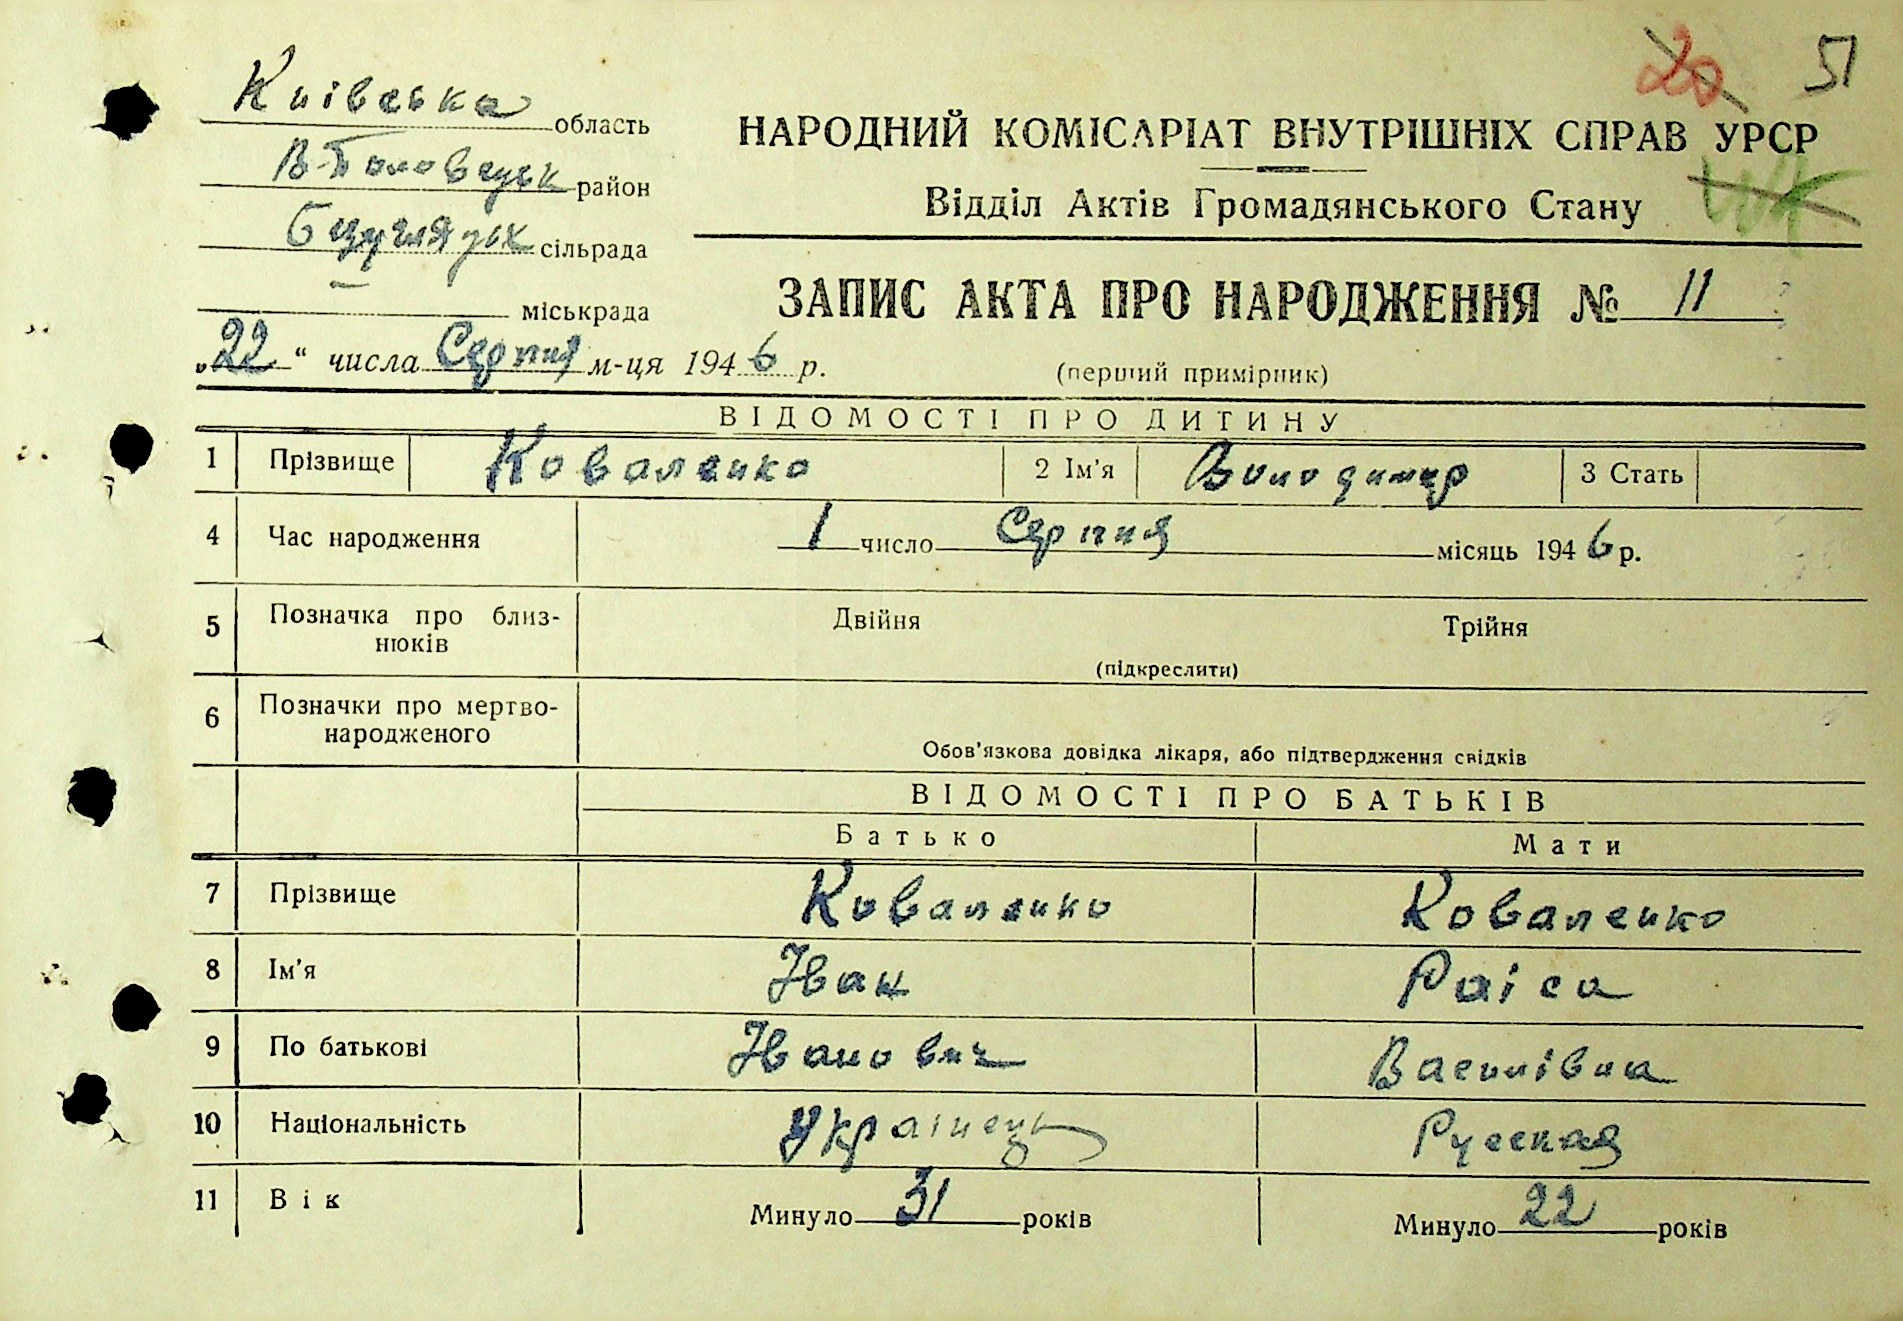 20 51
Київська область
В-Половецьк район
сільрада
міськрада
НАРОДНИЙ КОМІСАРІАТ ВНУТРІШНІХ СПРАВ УРСР
Відділ Актів Громадянського Стану
ЗАПИС АКТА ПРО НАРОДЖЕННЯ № 11
„22“ числа Серпня м-ця 1946 р.
(перший примірник)
ВІДОМОСТІ ПРО ДИТИНУ
1 Прізвище Коваленко 2 Ім'я Володимир 3 Стать
4 Час народження 1 число Серпня місяць 1946 р.
5 Позначка про близ-
нюків
Двійня Трійня
(підкреслити)
6 Позначки про мертво-
народженого
Обов'язкова довідка лікаря, або підтвердження свідків
ВІДОМОСТІ ПРО БАТЬКІВ
Батько Мати
7 Прізвище Коваленко Коваленко
8 Ім'я Іван Раіса
9 По батькові Іванович Василівна
10 Національність Українець Русская
11 Вік Минуло 31 років Минуло 22 років